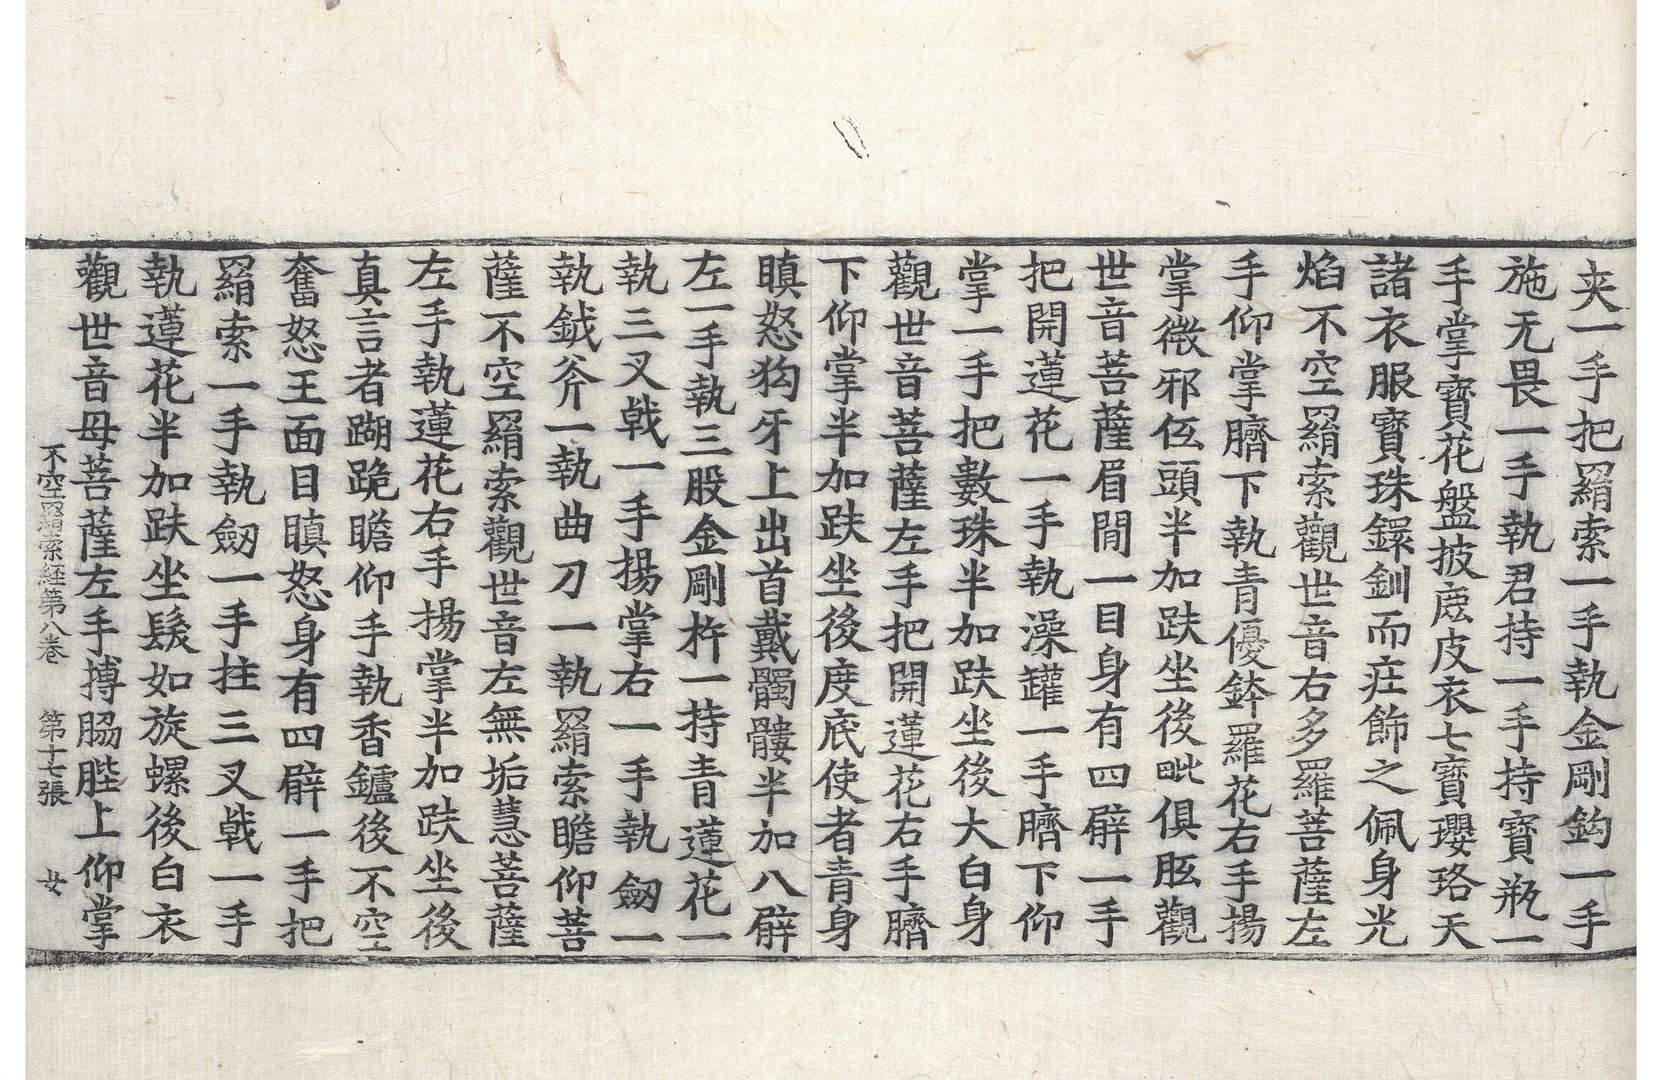 夾一手把羂索一手執金剛鈎一手
施无畏一手執君持一手持寶瓶一
手掌寶花盤披鹿皮衣七寶瓔珞天
諸衣服寶珠鐶釧而莊飾之佩身光
焰不空羂索觀世音右多羅菩薩左
手仰掌臍下執青優鉢羅花右手揚
掌微邪伍頭半加趺坐後毗俱胝觀
世音菩薩眉間一目身有四臂一手
把開蓮花一手執澡罐一手臍下仰
掌一手把數珠半加趺坐後大白身
觀世音菩薩左手把開蓮花右手臍
下仰掌半加趺坐後度底使者青身
瞋怒狗牙上出首戴髑髏半加八臂
左一手執三股金剛杵一持青蓮花一
執三叉戟一手揚掌右一手執劒一
執鉞斧一執曲刀一執羂索瞻仰菩
薩不空羂索觀世音左無垢慧菩薩
左手執蓮花右手揚掌半加趺坐後
真言者䠒跪瞻仰手執香鑪後不空
奮怒王面目瞋怒身有四臂一手把
羂索一手執劒一手拄三叉戟一手
執蓮花半加趺坐髮如旋螺後白衣
觀世音母菩薩左手搏脇䏶上仰掌
不空羂索経第八卷 第十七張 女